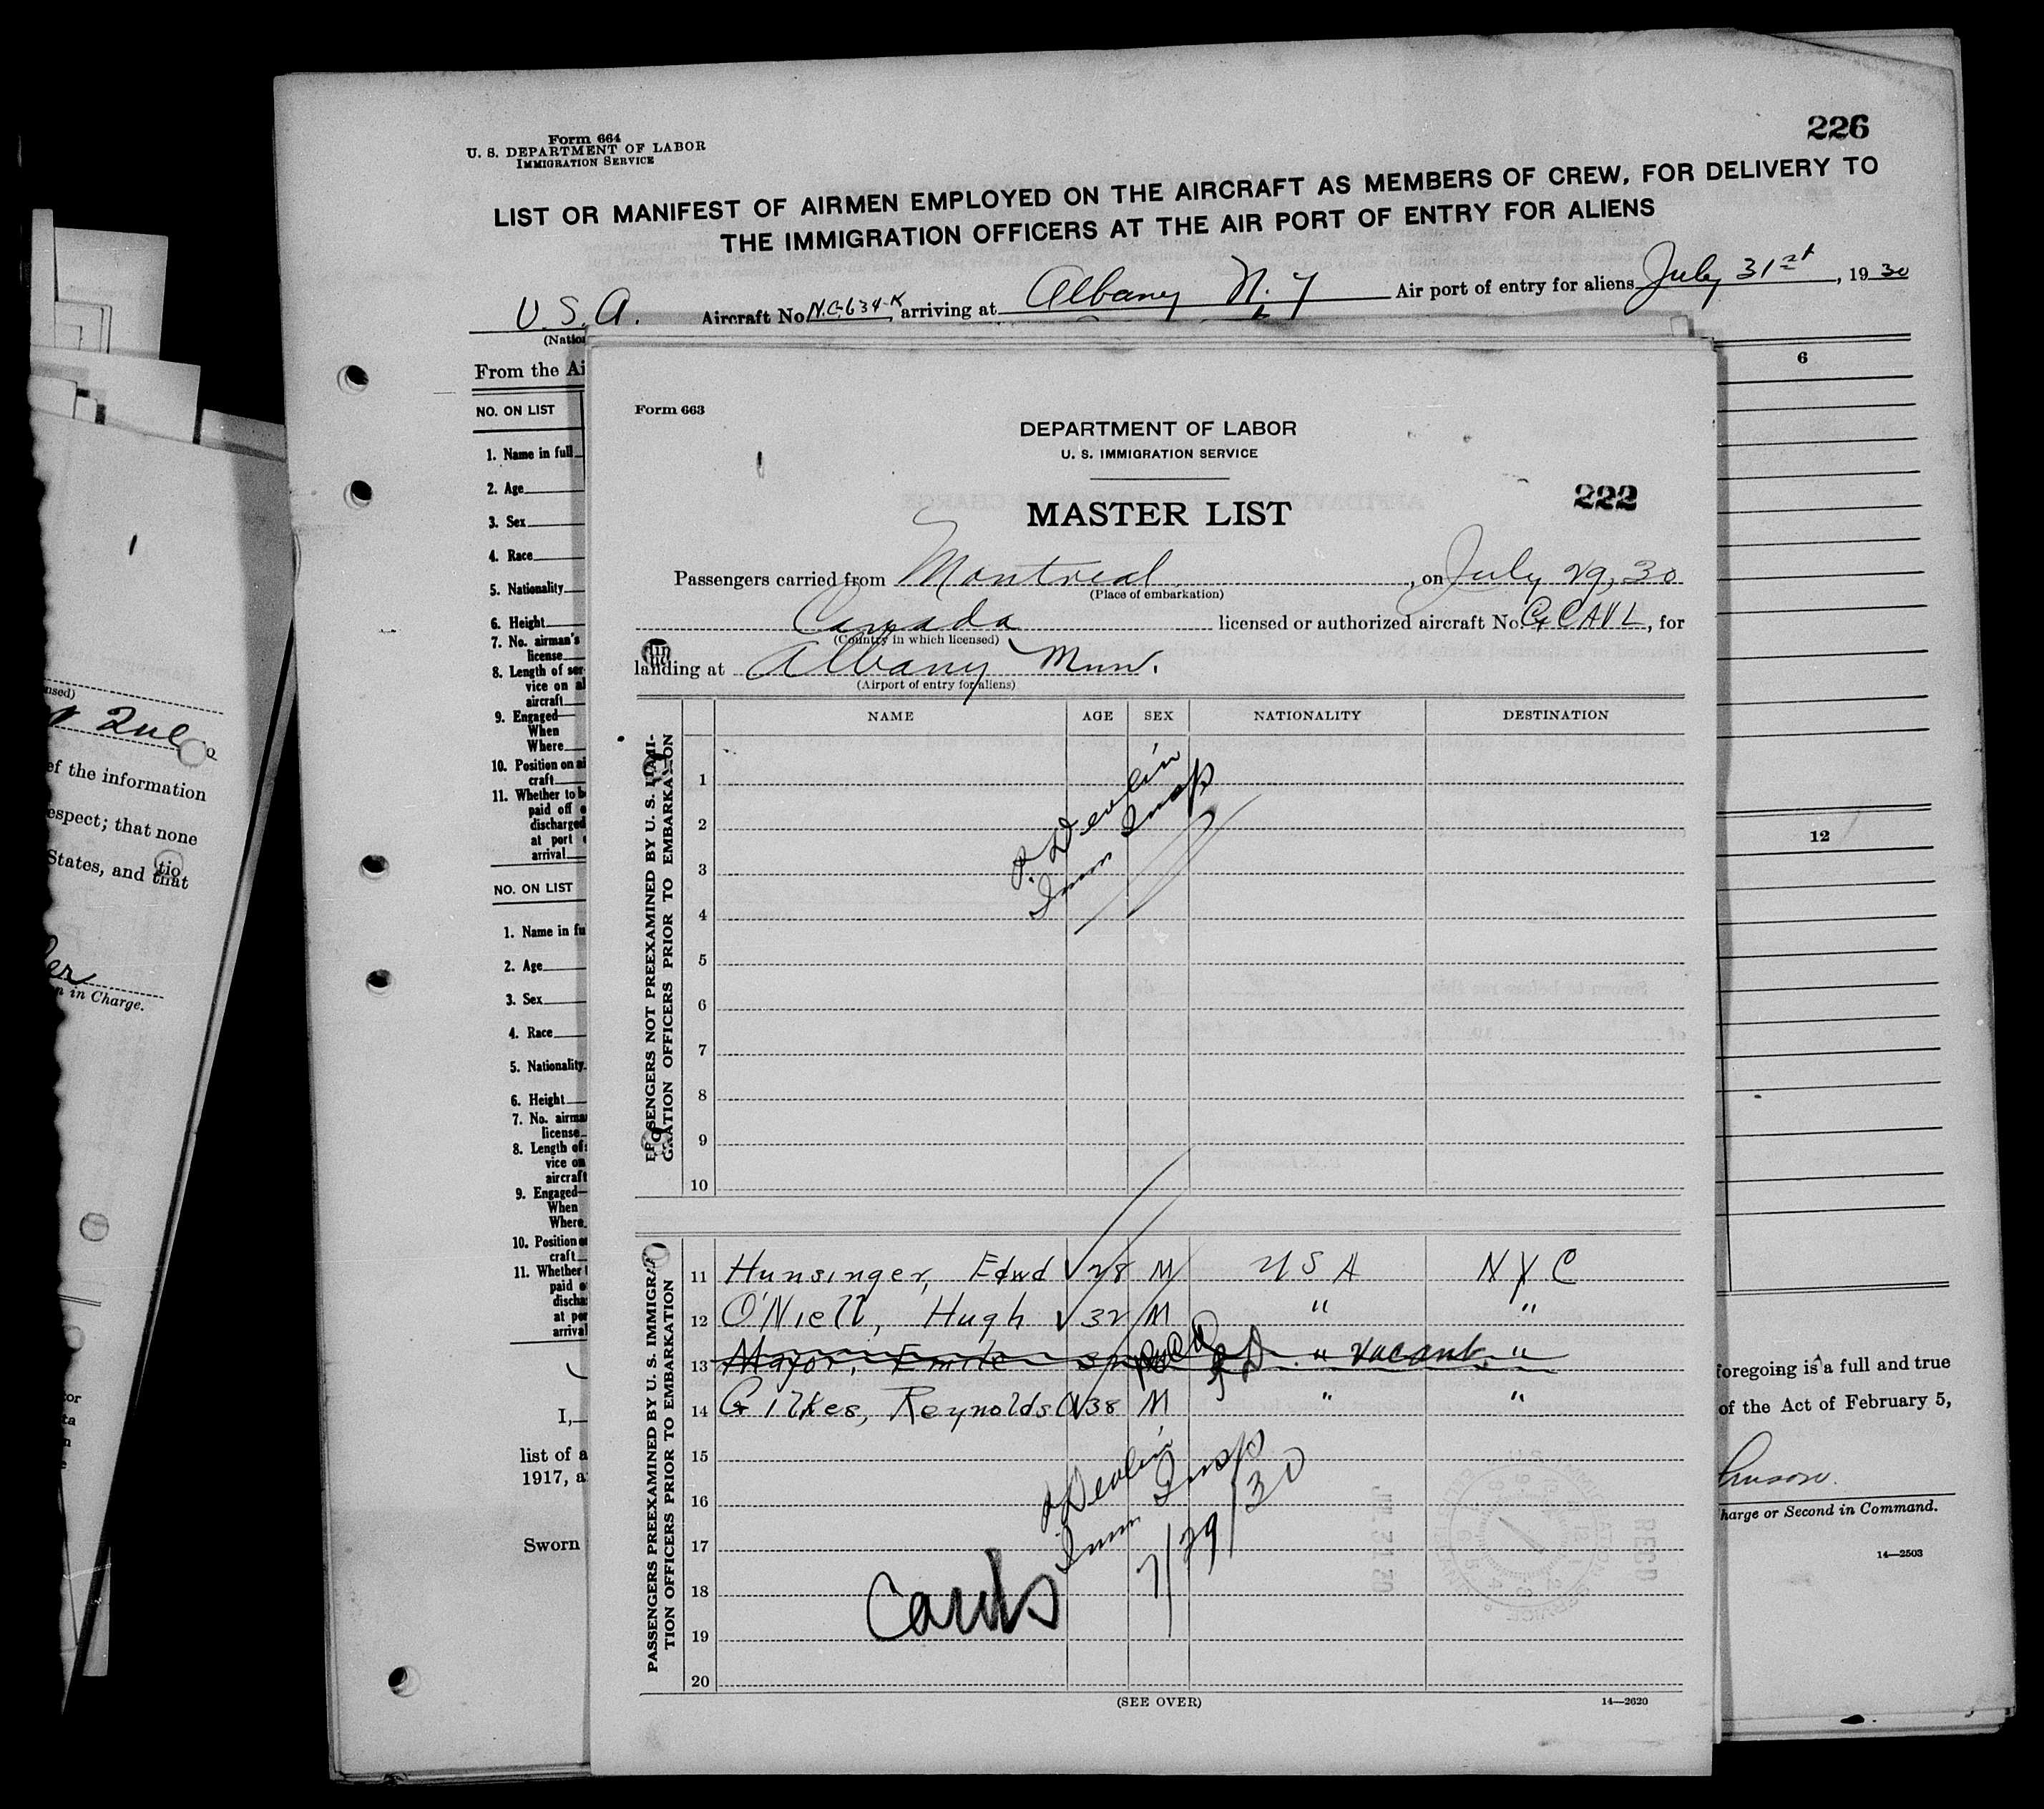 Form 664
U. S. DEPARTMENT OF LABOR
IMMIGRATION SERVICE
226
LIST OR MANIFEST OF AIRMEN EMPLOYED ON THE AIRCRAFT AS MEMBERS OF CREW, FOR DELIVERY TO
THE IMMIGRATION OFFICERS AT THE AIR PORT OF ENTRY FOR ALIENS
U.S.A. Aircraft No. N.C.634-K arriving at Albany N.Y Air port of entry for aliens July 31st, 1930
(Natio
From the Ai
6
NO. ON LIST
1. Name in full
2. Age
3. Sex
4. Race
5. Nationality
6. Height
7. No. airman's
license
8. Length of ser-
vice on
aircraft
9. Engaged—
When
Where
10. Position on
craft
11. Whether to b
paid off
discharged
at port
arrival
12
NO. ON LIST
1. Name in fu
2. Age
3. Sex
4. Race
5. Nationality
6. Height
7. No. airma
license
8. Length of
vice on
aircraft
9. Engaged—
When
Where
10. Position
craft
11. Whether
paid
discha
at por
arrival
I,
list of a
1917, a
Sworn
foregoing is a full and true
of the Act of February 5,
harge or Second in Command.
14—2503
Form 663
DEPARTMENT OF LABOR
U. S. IMMIGRATION SERVICE
222
MASTER LIST
Passengers carried from Montreal, on July 29, 30
(Place of embarkation)
Canada licensed or authorized aircraft No. G CAVL, for
(Country in which licensed)
landing at Albany Mun.
(Airport of entry for aliens)
NAME AGE SEX NATIONALITY DESTINATION
PASSENGERS NOT PREEXAMINED BY U. S. IMMI-
GRATION OFFICERS PRIOR TO EMBARKATION
1
2
3
4
5
6
7
8
9
10
P. Devlin
Imm Insp
PASSENGERS PREEXAMINED BY U. S. IMMIGRA-
TION OFFICERS PRIOR TO EMBARKATION
11 Hunsinger, Edwd 28 M USA NYC
12 O'Niell, Hugh 32 M " "
13 Mayor, Emile " vacant "
14 Gilkes, Reynolds 38 M " "
15
16
17
18
19
20
P Devlin
Imm Insp
7/29/30
Cards
REC'D
JUL 31 30
(SEE OVER)
14—2620
nsed)
ef the information
espect; that none
States, and that
n in Charge.